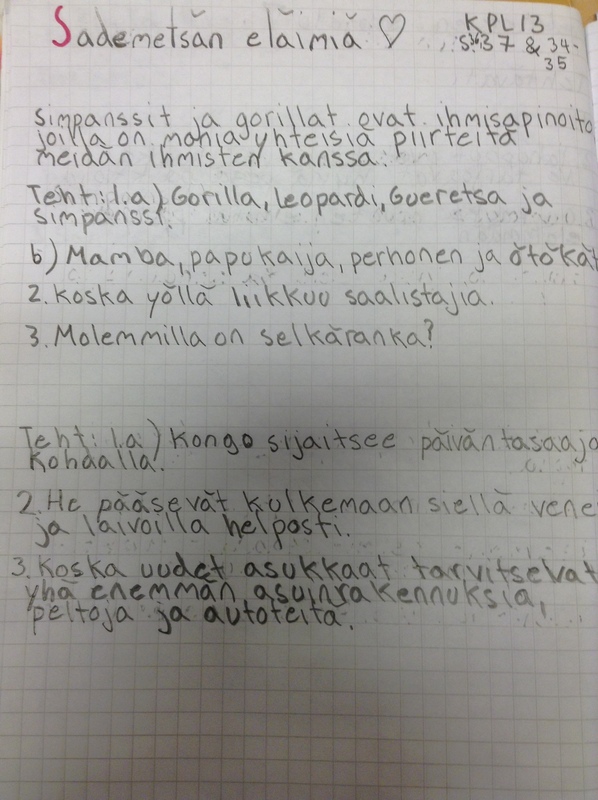 Sademetsän eläimiä ♡
KPL13
s.36 37 & 34-
35
simpanssit ja gorillat ovat ihmisapinoita
joilla on monia yhteisiä piirteitä
meidän ihmisten kanssa.
Teht: 1.a) Gorilla, leopardi, Gueretsa ja
simpanssi.
b) Mamba, papukaija, perhonen ja ötökät
2. Koska yöllä liikkuu saalistajia.
3. Molemmilla on selkäranka?
Teht: 1.a) Kongo sijaitsee päiväntasaaja
kohdalla.
2. He pääsevät kulkemaan siellä vene
ja laivoilla helposti.
3. Koska uudet asukkaat tarvitsevat
yhä enemmän asuinrakennuksia,
peltoja ja autoteitä.